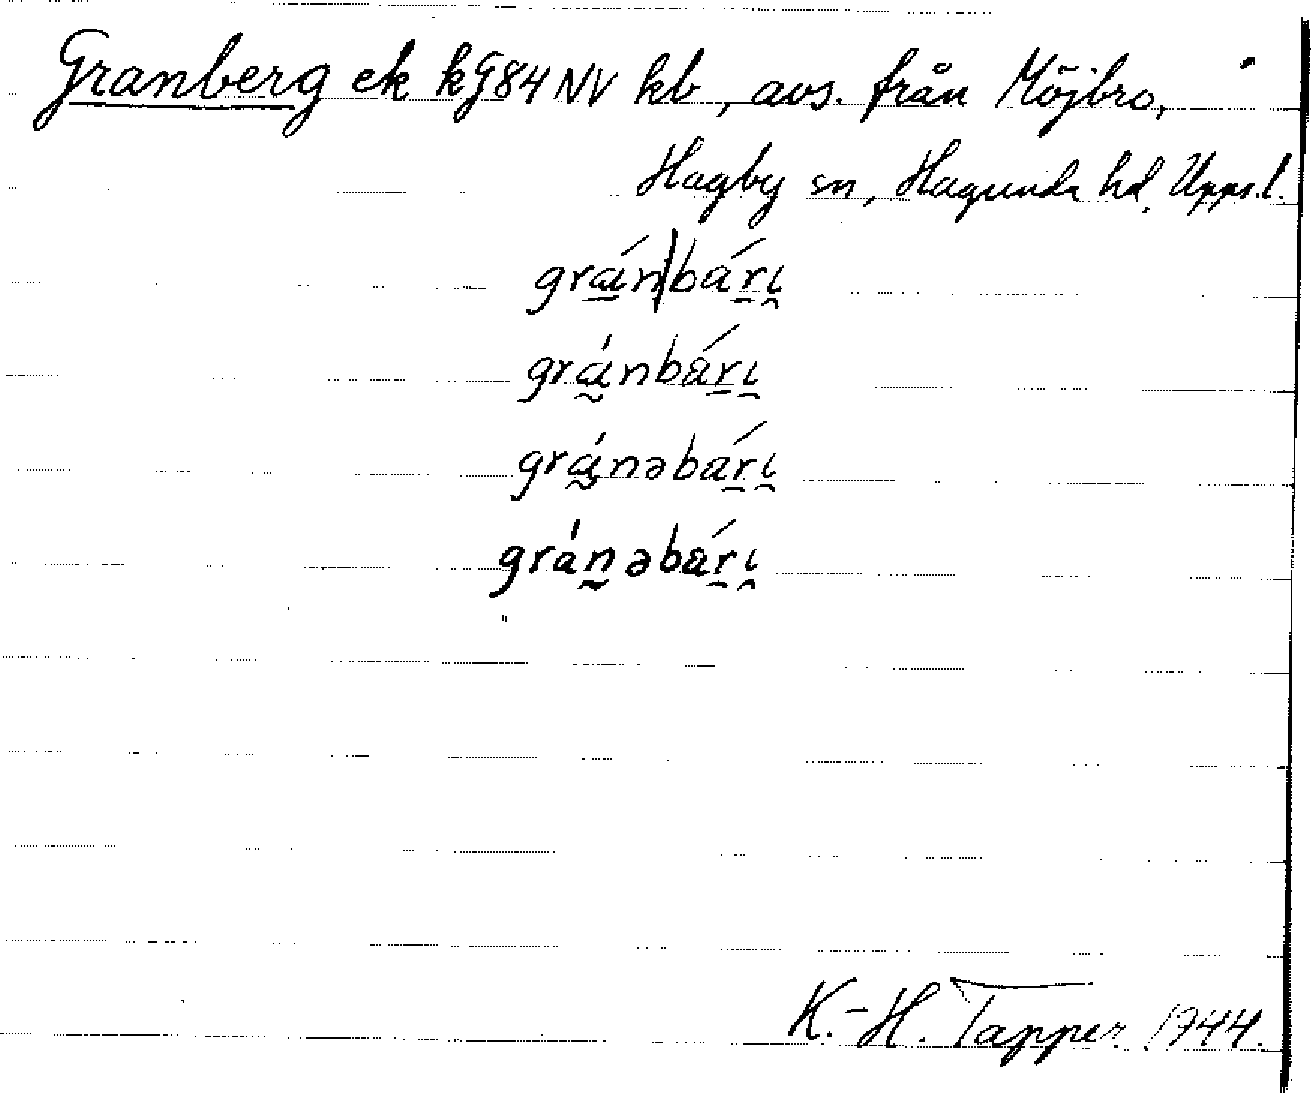 Granberg ek kG84NV kb, avs. från Möjbro,
Hagby sn, Hagunda hd, Uppl.
gránbárɩ
gránbárɩ
gránəbárɩ
gránəbárɩ
K.-H. Tapper 1944.